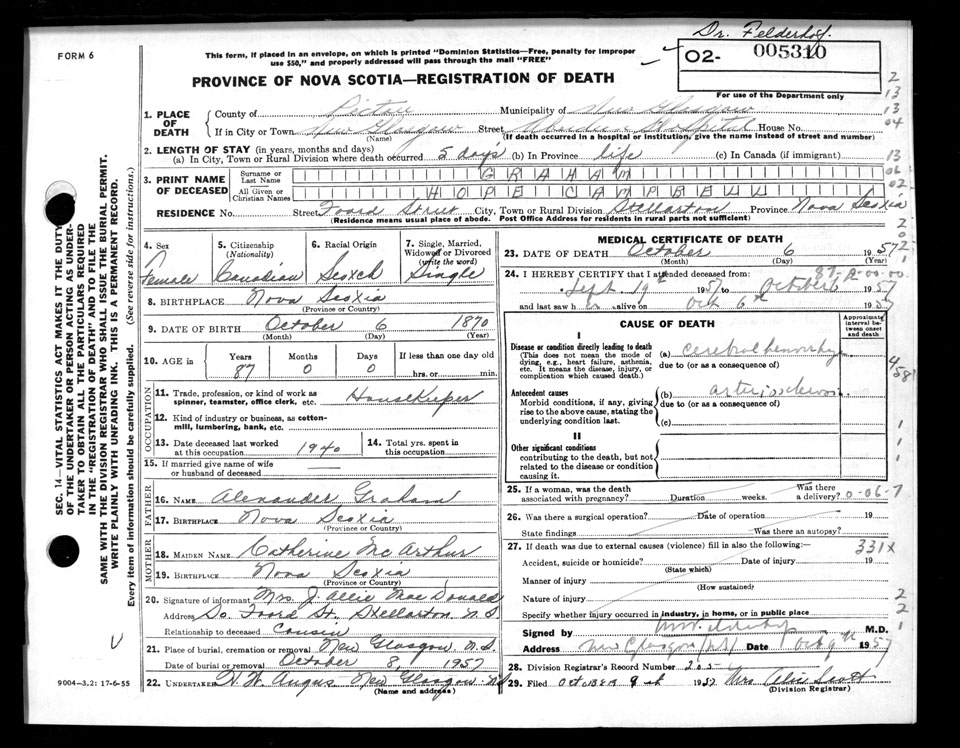 Dr. Felderhof.
FORM 6
This form, if placed in an envelope, on which is printed "Dominion Statistics—Free, penalty for improper
use $50," and properly addressed will pass through the mail "FREE"
02- 005310
PROVINCE OF NOVA SCOTIA—REGISTRATION OF DEATH
For use of the Department only
1. PLACE OF DEATH
County of Pictou Municipality of New Glasgow
If in City or Town New Glasgow Street Hospital House No.
(Name) (If death occurred in a hospital or institution, give the name instead of street and number)
2. LENGTH OF STAY (in years, months and days)
(a) In City, Town or Rural Division where death occurred 5 days (b) In Province life (c) In Canada (if immigrant)
3. PRINT NAME OF DECEASED
Surname or Last Name GRAHAM
All Given or Christian Names HOPE CAMPBELL
RESIDENCE No. Street Foord Street City, Town or Rural Division Stellarton Province Nova Scotia
(Residence means usual place of abode. Post Office Address for residents in rural parts not sufficient)
4. Sex Female
5. Citizenship (Nationality) Canadian
6. Racial Origin Scotch
7. Single, Married, Widowed or Divorced (write the word) Single
8. BIRTHPLACE Nova Scotia
(Province or Country)
9. DATE OF BIRTH October 6 1870
(Month) (Day) (Year)
10. AGE in Years 87 Months 0 Days 0 If less than one day old hrs. or min.
OCCUPATION
11. Trade, profession, or kind of work as spinner, teamster, office clerk, etc. Housekeeper
12. Kind of industry or business, as cotton-mill, lumbering, bank, etc.
13. Date deceased last worked at this occupation 1940
14. Total yrs. spent in this occupation
15. If married give name of wife or husband of deceased —
FATHER
16. NAME Alexander Graham
17. BIRTHPLACE Nova Scotia
(Province or Country)
MOTHER
18. MAIDEN NAME Catherine McArthur
19. BIRTHPLACE Nova Scotia
(Province or Country)
20. Signature of informant Mrs. J. Allie MacDonald
Address So. Foord St. Stellarton N.S
Relationship to deceased Cousin
21. Place of burial, cremation or removal New Glasgow N.S.
Date of burial or removal October 8, 1957
22. UNDERTAKER H W Angus New Glasgow N.S
(Name and address)
9004-3.2: 17-6-55
MEDICAL CERTIFICATE OF DEATH
23. DATE OF DEATH October 6 1957
(Month) (Day) (Year)
87-A-00-00
24. I HEREBY CERTIFY that I attended deceased from:
Sept 19th 1957 to October 6 1957
and last saw her alive on Oct 6th 1957
CAUSE OF DEATH
Approximate interval between onset and death
I
Disease or condition directly leading to death
(This does not mean the mode of dying, e.g., heart failure, asthenia, etc. It means the disease, injury, or complication which caused death.)
(a) Cerebral hemorrhage
due to (or as a consequence of)
Antecedent causes
Morbid conditions, if any, giving rise to the above cause, stating the underlying condition last.
(b) arteriosclerosis
due to (or as a consequence of)
(c)
II
Other significant conditions
contributing to the death, but not related to the disease or condition causing it.
25. If a woman, was the death associated with pregnancy? Duration weeks. Was there a delivery? 0-06-7
26. Was there a surgical operation? Date of operation 19
State findings Was there an autopsy?
27. If death was due to external causes (violence) fill in also the following:— 331X
Accident, suicide or homicide? Date of injury 19
(State which)
Manner of injury
(How sustained)
Nature of injury
Specify whether injury occurred in industry, in home, or in public place
Signed by M.D.
Address New Glasgow (N.S) Date Oct 9th 1957
28. Division Registrar's Record Number 205
29. Filed Oct 9th 1957 Mrs Alice Scott
(Division Registrar)
SEC. 14—VITAL STATISTICS ACT MAKES IT THE DUTY
OF THE UNDERTAKER OR PERSON ACTING AS UNDER-
TAKER TO OBTAIN ALL THE PARTICULARS REQUIRED
IN THE "REGISTRATION OF DEATH" AND TO FILE THE
SAME WITH THE DIVISION REGISTRAR WHO SHALL ISSUE THE BURIAL PERMIT.
WRITE PLAINLY WITH UNFADING INK. THIS IS A PERMANENT RECORD.
Every item of information should be carefully supplied. (See reverse side for instructions.)